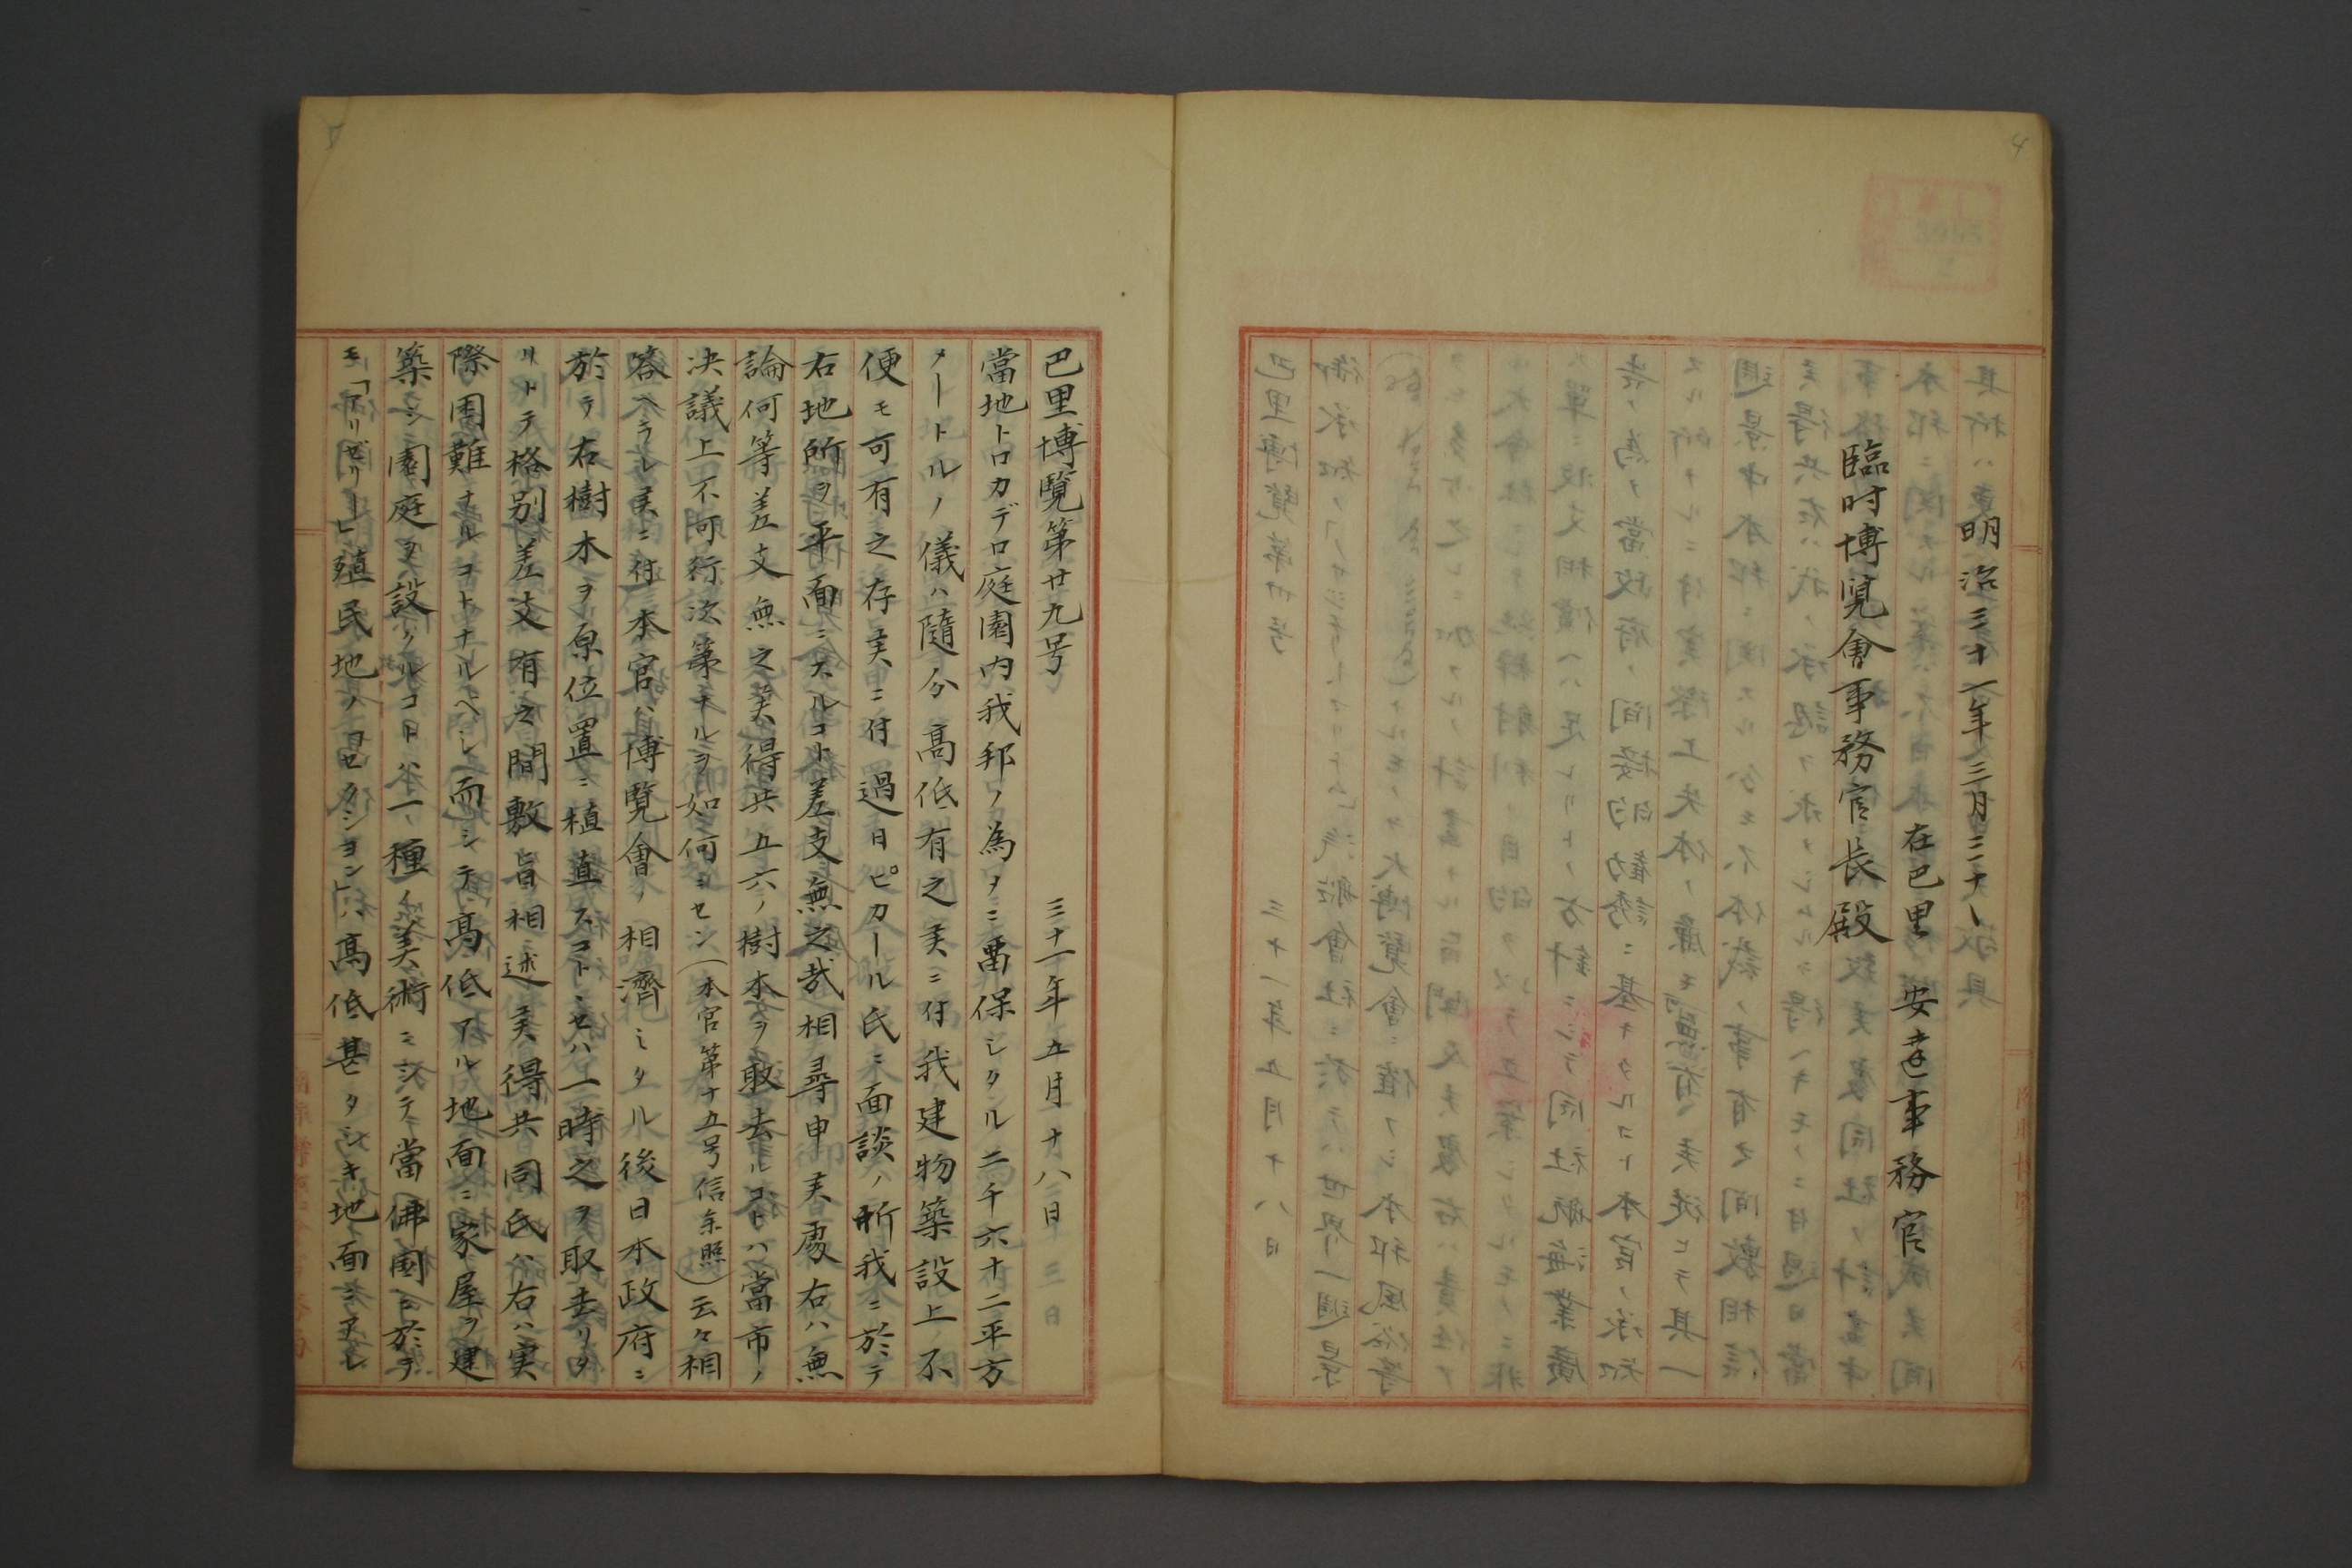 明治三十一年三月三十一
在巴里 安達事務官
臨时博覧會事務官長殿
巴里博覧第廿九号
三十一年五月十八日
當地トロカデロ庭園内我邦ノ為メニ畱保シタル二千六十二平方
メートルノ儀ハ隨分高低有之候ニ付我建物築設上不
便モ可有之存候ニ付過日ピカール氏ニ面談ノ所我ニ於テ
右地所ヲ平面ニスルコト差支無之哉相尋申候處右ハ無
論何等差支無之候得共五六ノ樹木ヲ取去ルコトハ當市ノ
決議上不可行次第ナルヲ如何ニセン(本官第十五号信参照)云々相
答ヘラレ候ニ付本官ハ博覧會ノ相濟ミタル後日本政府ニ
於テ右樹木ヲ原位置ニ植直スコトヽセハ一時之ヲ取去リタ
リトテ格別差支有之間敷旨相述候得共同氏ハ右ハ実
際困難ナルコトナルベシ而シテ高低アル地面ニ家屋ヲ建
築シ園庭ヲ設クルコトハ一種ノ美術ニシテ當佛國ニ於テ
モ「アリゼリー」殖民地ノ「セクション」ハ高低甚タシキ地面ニアレ